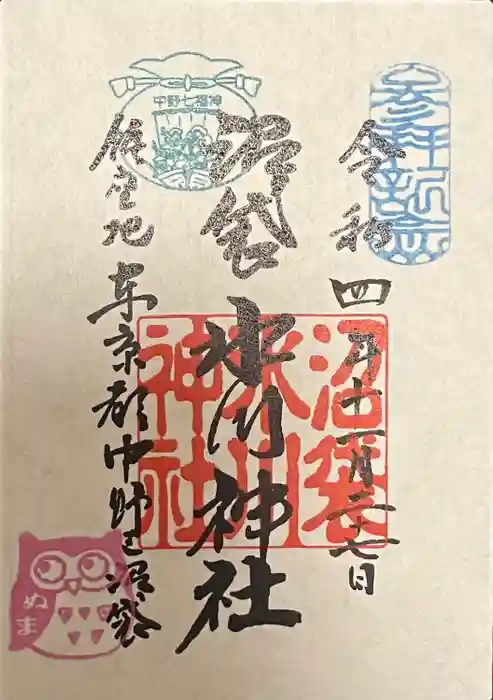 参拝記念
令和四年十一月廿七日
沼袋
氷川神社
沼袋
氷川
神社
中野七福神
鎮座地
東京都中野区沼袋
ぬま